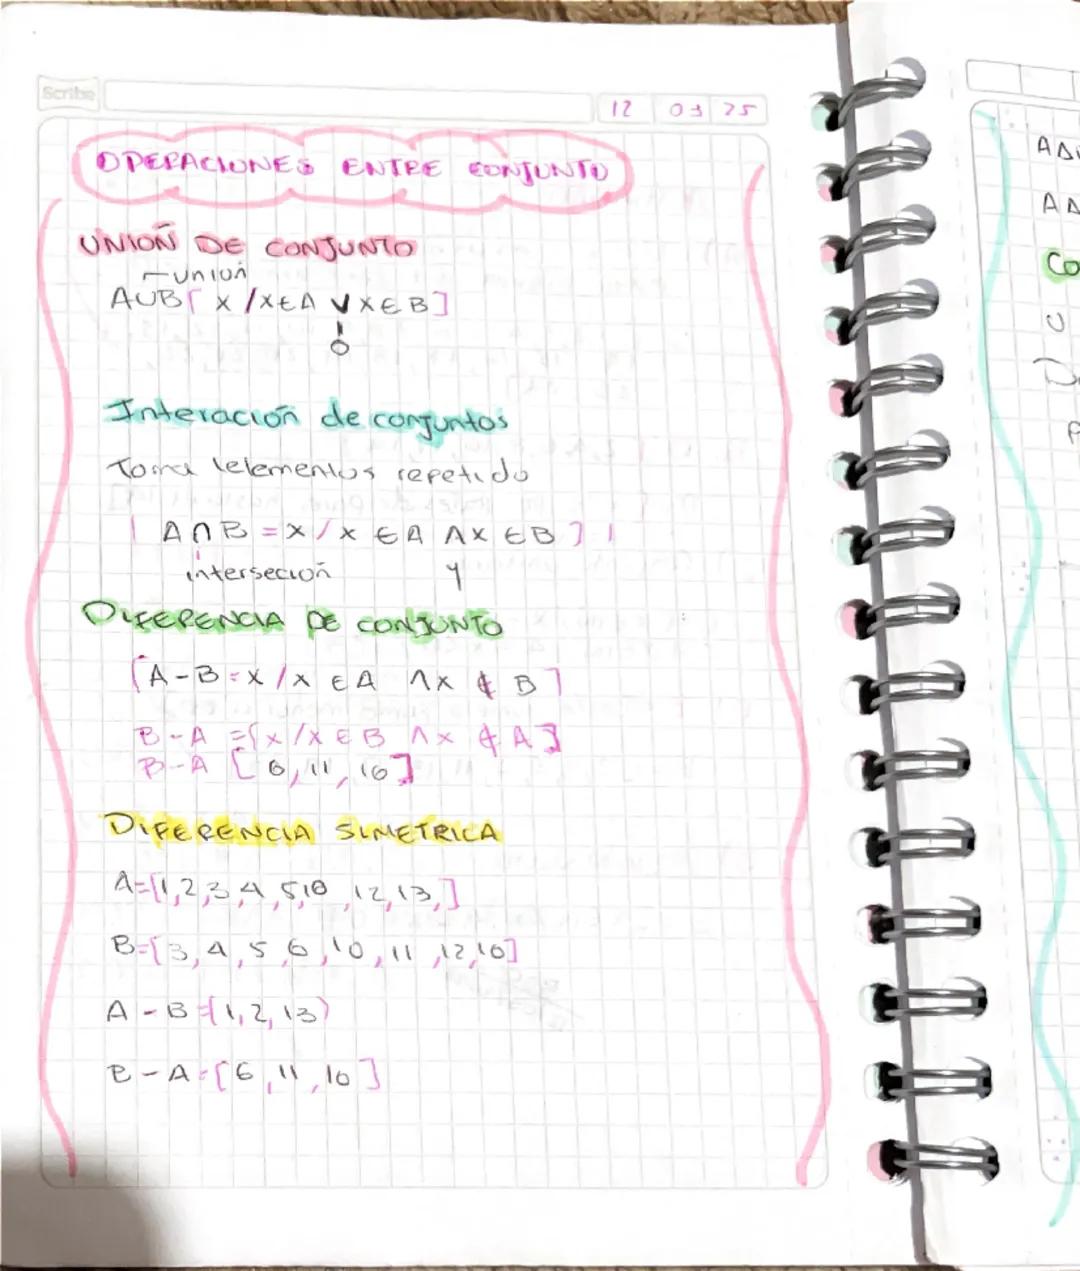 Scribe
12 03 25
OPERACIONES ENTRE CONJUNTO
UNION DE CONJUNTO
union
AUB[ x /x∈A ∨ x∈B]
o
Interación de conjuntos
Toma lelementos repetido
[ A∩B = x / x ∈ A ∧ x ∈ B ]
interseción y
DIFERENCIA DE CONJUNTO
[A-B=x / x ∈ A ∧x ∉ B]
B-A ={x/x ∈ B ∧x ∉ A}
B-A [6, 11, 16]
DIFERENCIA SIMETRICA
A=[1,2,3,4,5,10,12,13,]
B=[3,4,5,6,10,11,12,16]
A-B={1,2,13)
B-A=[6,11,16]
AΔ
AΔ
Co
U
D
P